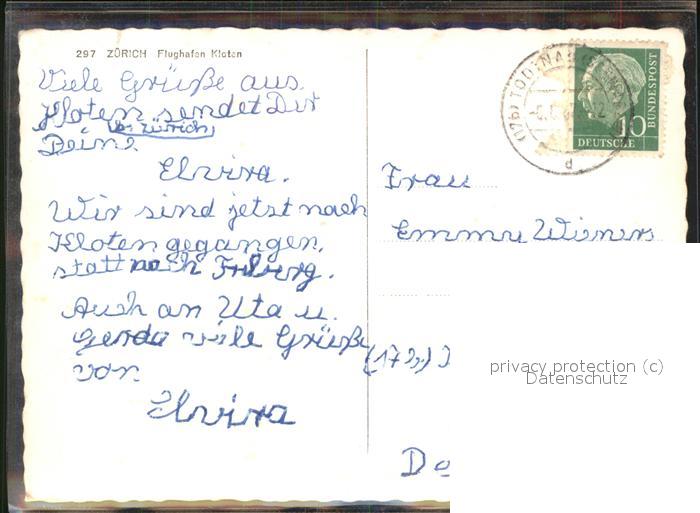 297 ZÜRICH Flughafen Kloten
Viele Grüße aus
Kloten sendet Dir
b. Zürich
Deine
Elvira.
Wir sind jetzt nach
Kloten gegangen,
statt nach Friburg.
Auch an Uta u.
Gerda viele Grüße
von
Elvira
10
DEUTSCHE
BUNDESPOST
d
Frau
Emmy Wieners
(17b)
privacy protection (c)
Datenschutz